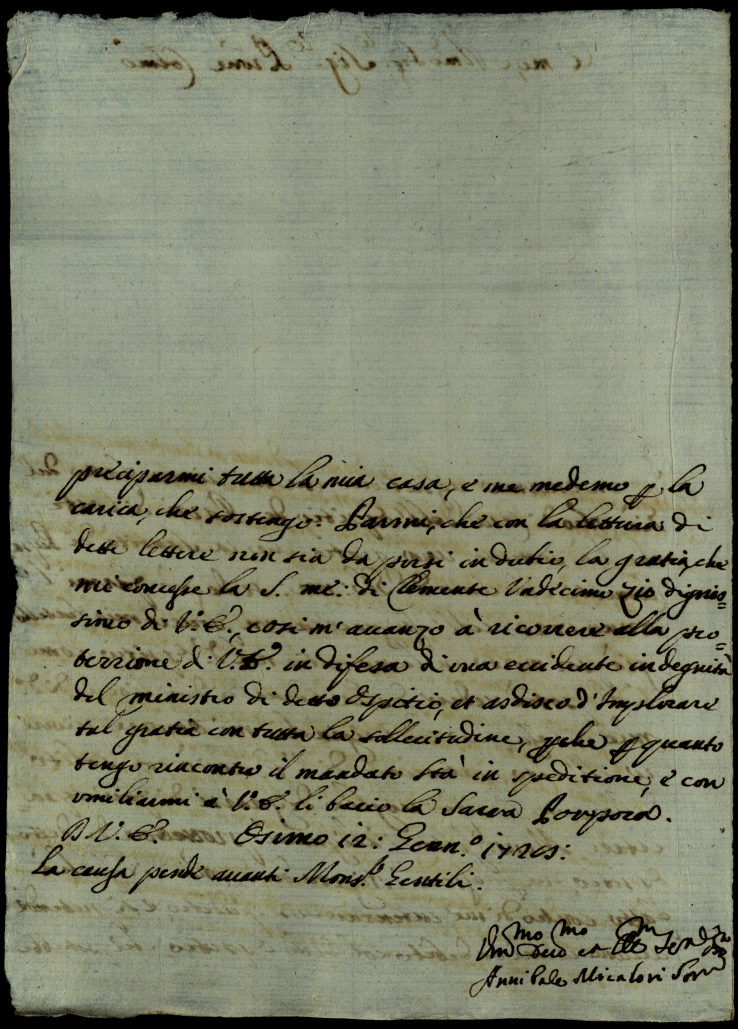 precipurmi tutta la mia casa, e me medemo p la
carica, che sostengo. Parmi, che con la lettura di
dette lettere non sia da porsi in dubio, la gratia, che
mi concesse la S. me: di Clemente Undecimo zio dignis=
simo di V. E., cosi m'auanzo à ricorrere alla pro=
tezzione di V. E. in difesa di una euidente indegnità
del ministro di detto Ospitio, et ardisco d'Implorare
tal gratia con tutta la sollecitudine, pche p quanto
tengo rincontro il mandato stà in speditione, e con
umiliarmi à V. E. li bacio la Sacra Porpora.
D V. E. Osimo 12: Genn.º
La causa pende auanti Mons.r Gentili.
Um.mo Deu.mo et
Annibale Micalori